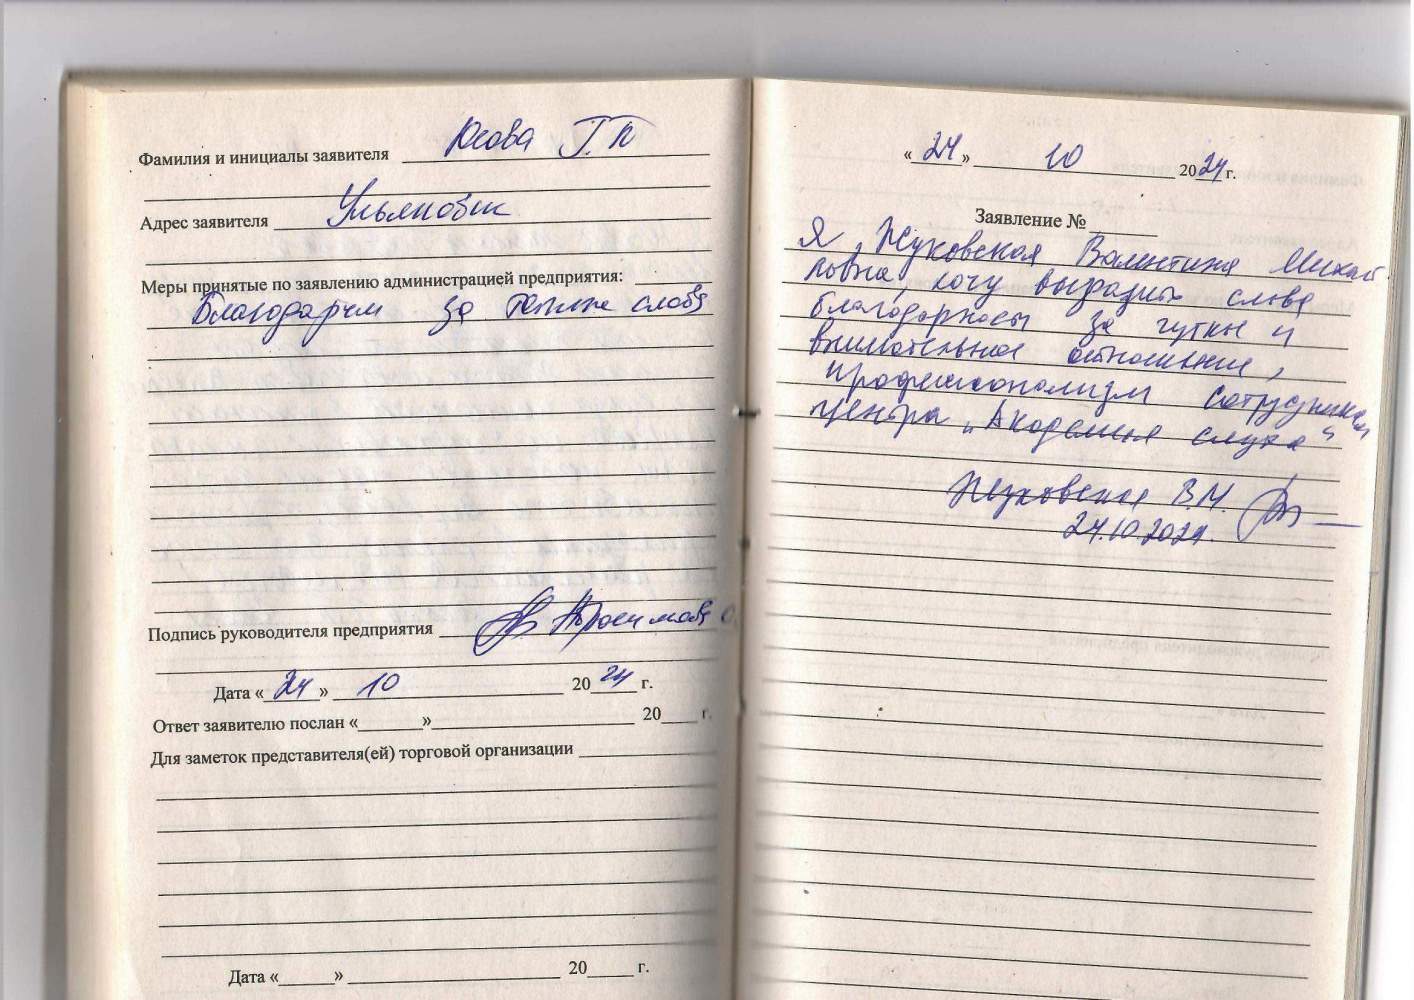 Фамилия и инициалы заявителя Юсова Г.П
Адрес заявителя Ульяновск
Меры принятые по заявлению администрацией предприятия:
Благодарим за теплые слова
Подпись руководителя предприятия
Дата «24» 10 2024 г.
Ответ заявителю послан «      » 20    г.
Для заметок представителя(ей) торговой организации
Дата «      » 20    г.
«24» 10 2024 г.
Заявление №
Я, Жуковская Валентина Михай
ловна, хочу выразить слова
благодарности за чуткое и
внимательное отношение,
профессионализм сотрудников
центра „Академия слуха"
Жуковская В.М.
24.10.2024.